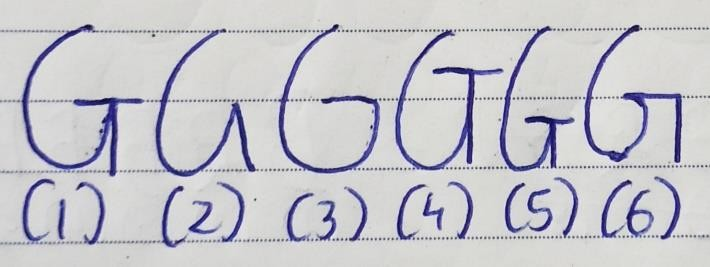 G G G G G G
(1) (2) (3) (4) (5) (6)